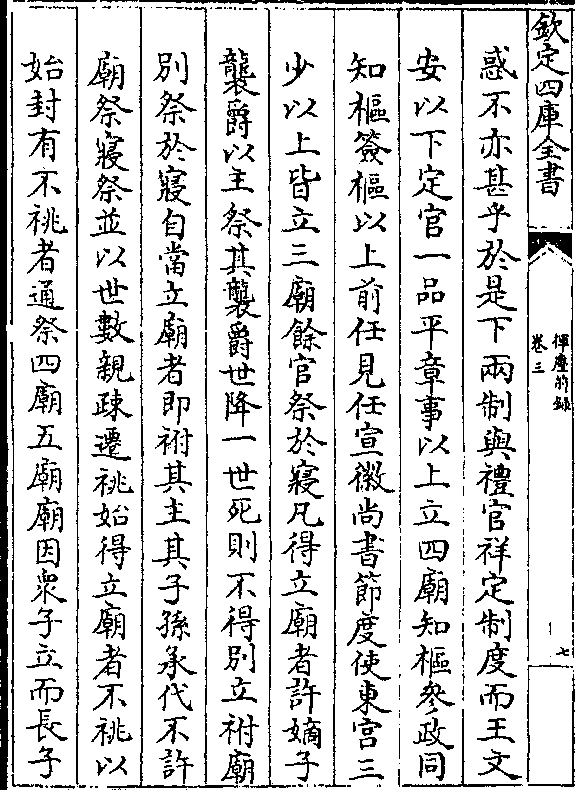 欽定四庫全書
揮麈前錄
卷三
七
惑不亦甚乎於是下兩制與禮官祥定制度而王文
安以下定官一品平章事以上立四廟知樞參政同
知樞簽樞以上前任見任宣徽尚書節度使東宮三
少以上皆立三廟餘官祭於寢凡得立廟者許嫡子
襲爵以主祭其襲爵世降一世死則不得別立祔廟
別祭於寢自當立廟者即祔其主其子孫承代不許
廟祭寢祭並以世數親疎遷祧始得立廟者不祧以
始封有不祧者通祭四廟五廟廟因衆子立而長子